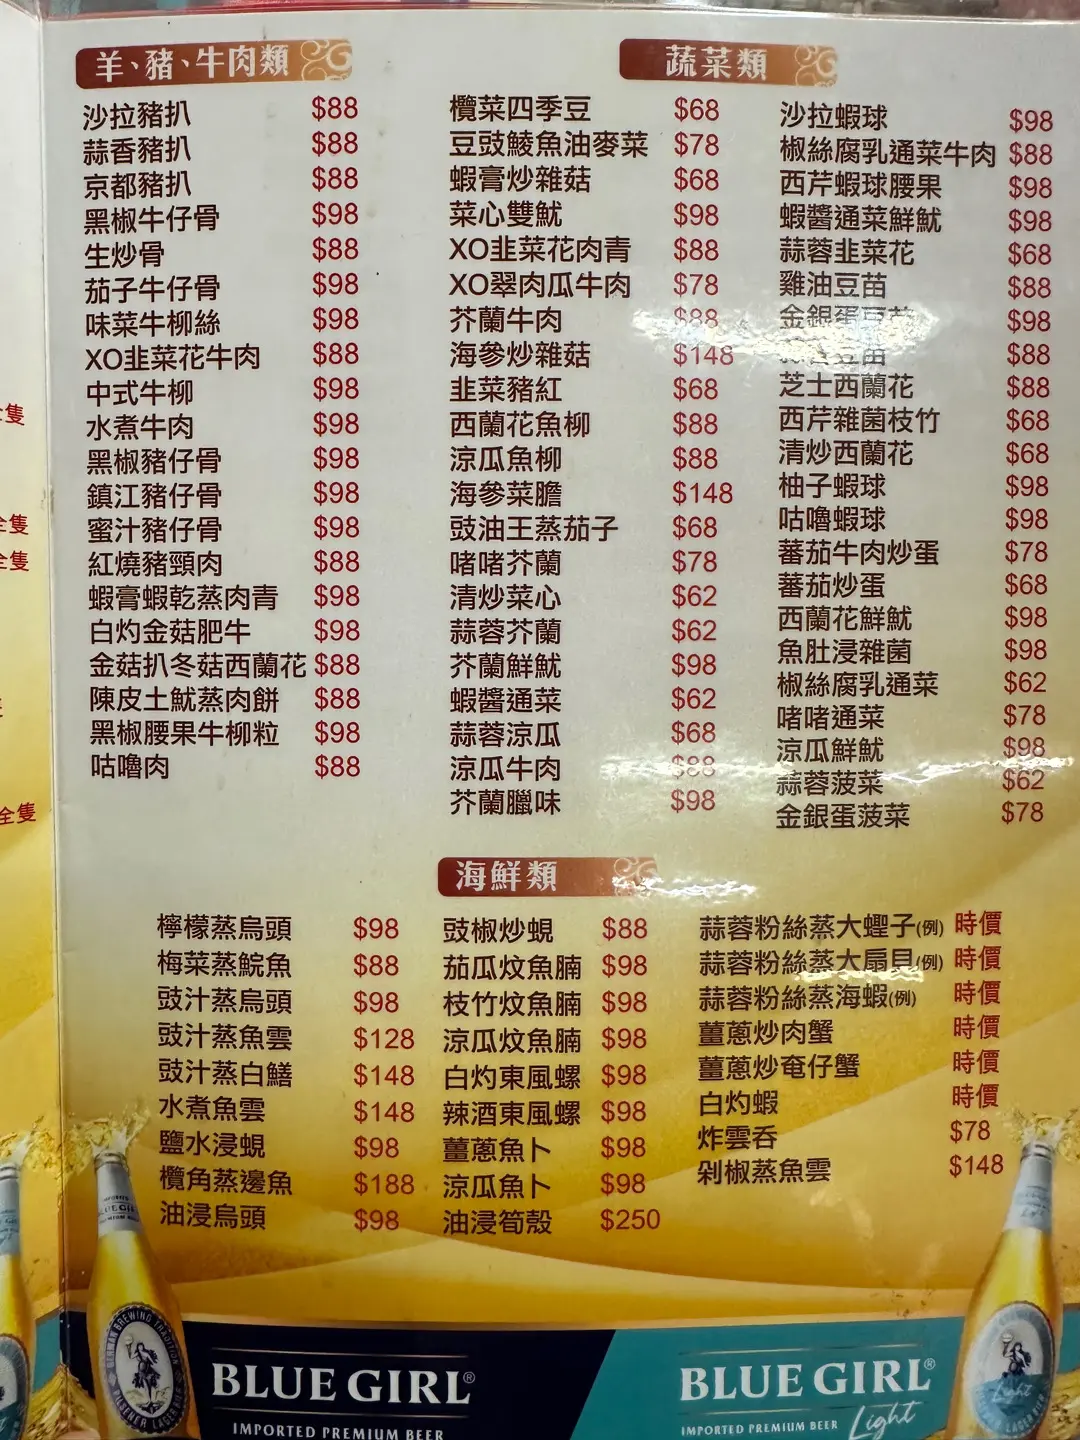 羊、豬、牛肉類
沙拉豬扒 $88
蒜香豬扒 $88
京都豬扒 $88
黑椒牛仔骨 $98
生炒骨 $88
茄子牛仔骨 $98
味菜牛柳絲 $98
XO韭菜花牛肉 $88
中式牛柳 $98
水煮牛肉 $98
黑椒豬仔骨 $98
鎮江豬仔骨 $98
蜜汁豬仔骨 $98
紅燒豬頸肉 $88
蝦膏蝦乾蒸肉青 $98
白灼金菇肥牛 $98
金菇扒冬菇西蘭花 $88
陳皮土魷蒸肉餅 $88
黑椒腰果牛柳粒 $98
咕嚕肉 $88
蔬菜類
欖菜四季豆 $68
豆豉鯪魚油麥菜 $78
蝦膏炒雜菇 $68
菜心雙魷 $98
XO韭菜花肉青 $88
XO翠肉瓜牛肉 $78
芥蘭牛肉 $88
海參炒雜菇 $148
韭菜豬紅 $68
西蘭花魚柳 $88
涼瓜魚柳 $88
海參菜膽 $148
豉油王蒸茄子 $68
啫啫芥蘭 $78
清炒菜心 $62
蒜蓉芥蘭 $62
芥蘭鮮魷 $98
蝦醬通菜 $62
蒜蓉涼瓜 $68
涼瓜牛肉 $88
芥蘭臘味 $98
沙拉蝦球 $98
椒絲腐乳通菜牛肉 $88
西芹蝦球腰果 $98
蝦醬通菜鮮魷 $98
蒜蓉韭菜花 $68
雞油豆苗 $88
金銀蛋豆苗 $98
豆苗 $88
芝士西蘭花 $88
西芹雜菌枝竹 $68
清炒西蘭花 $68
柚子蝦球 $98
咕嚕蝦球 $98
蕃茄牛肉炒蛋 $78
蕃茄炒蛋 $68
西蘭花鮮魷 $98
魚肚浸雜菌 $98
椒絲腐乳通菜 $62
啫啫通菜 $78
涼瓜鮮魷 $98
蒜蓉菠菜 $62
金銀蛋菠菜 $78
海鮮類
檸檬蒸烏頭 $98
梅菜蒸鯇魚 $88
豉汁蒸烏頭 $98
豉汁蒸魚雲 $128
豉汁蒸白鱔 $148
水煮魚雲 $148
鹽水浸蜆 $98
欖角蒸邊魚 $188
油浸烏頭 $98
豉椒炒蜆 $88
茄瓜炆魚腩 $98
枝竹炆魚腩 $98
涼瓜炆魚腩 $98
白灼東風螺 $98
辣酒東風螺 $98
薑蔥魚卜 $98
涼瓜魚卜 $98
油浸筍殼 $250
蒜蓉粉絲蒸大蟶子(例) 時價
蒜蓉粉絲蒸大扇貝(例) 時價
蒜蓉粉絲蒸海蝦(例) 時價
薑蔥炒肉蟹 時價
薑蔥炒奄仔蟹 時價
白灼蝦 時價
炸雲呑 $78
剁椒蒸魚雲 $148
隻
全隻
全隻
全隻
BLUE GIRL®
IMPORTED PREMIUM BEER
BLUE GIRL®
IMPORTED PREMIUM BEER Light
BLUE GIRL
GERMAN BREWING TRADITION
PILSENER LAGER BEER
Light